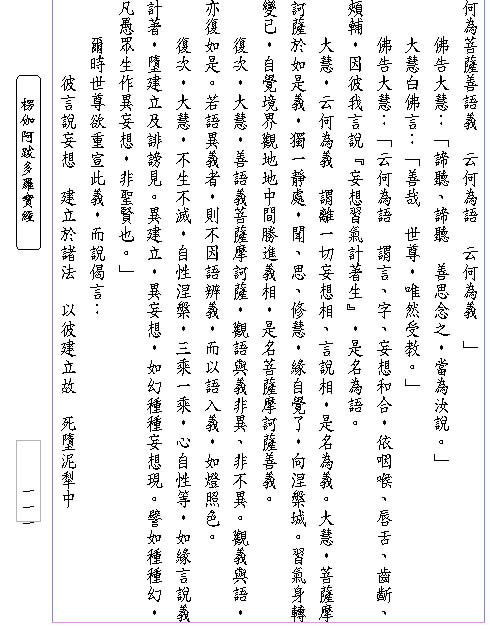 何為菩薩善語義　云何為語　云何為義　」
佛告大慧：「諦聽、諦聽　善思念之，當為汝說。」
大慧白佛言：「善哉　世尊，唯然受教。」
佛告大慧：「云何為語　謂言、字、妄想和合，依咽喉、唇舌、齒齗、
頰輔，因彼我言說『妄想習氣計著生』，是名為語。
大慧，云何為義　謂離一切妄想相、言說相，是名為義。大慧，菩薩摩
訶薩於如是義，獨一靜處，聞、思、修慧，緣自覺了，向涅槃城。習氣身轉
變已，自覺境界觀地地中間勝進義相，是名菩薩摩訶薩善義。
復次，大慧，善語義菩薩摩訶薩，觀語與義非異、非不異。觀義與語，
亦復如是。若語異義者，則不因語辨義，而以語入義，如燈照色。
復次，大慧，不生不滅，自性涅槃，三乘一乘，心自性等，如緣言說義
計著，墮建立及誹謗見。異建立，異妄想，如幻種種妄想現。譬如種種幻，
凡愚眾生作異妄想，非聖賢也。」
爾時世尊欲重宣此義，而說偈言：
彼言說妄想　建立於諸法　以彼建立故　死墮泥犁中
楞伽阿跋多羅寶經